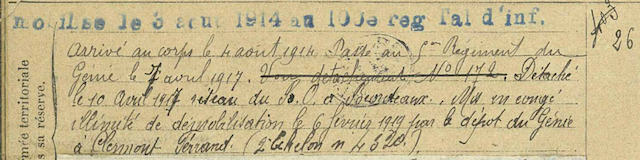 mobilisé le 3 aout 1914 au 100e reg Tal d'inf.
Arrivé au corps le 4 août 1914. Passé au 5me Régiment du
Génie le 7 avril 1917. détachement No 172. Détaché
le 10 Avril 1917 réseau du P.O. à Bordeaux. Mis en congé
illimité de démobilisation le 6 février 1919 par le dépôt du Génie
à Clermont Ferrand (2e Echelon n 4520).
26
armée territoriale
sa réserve.